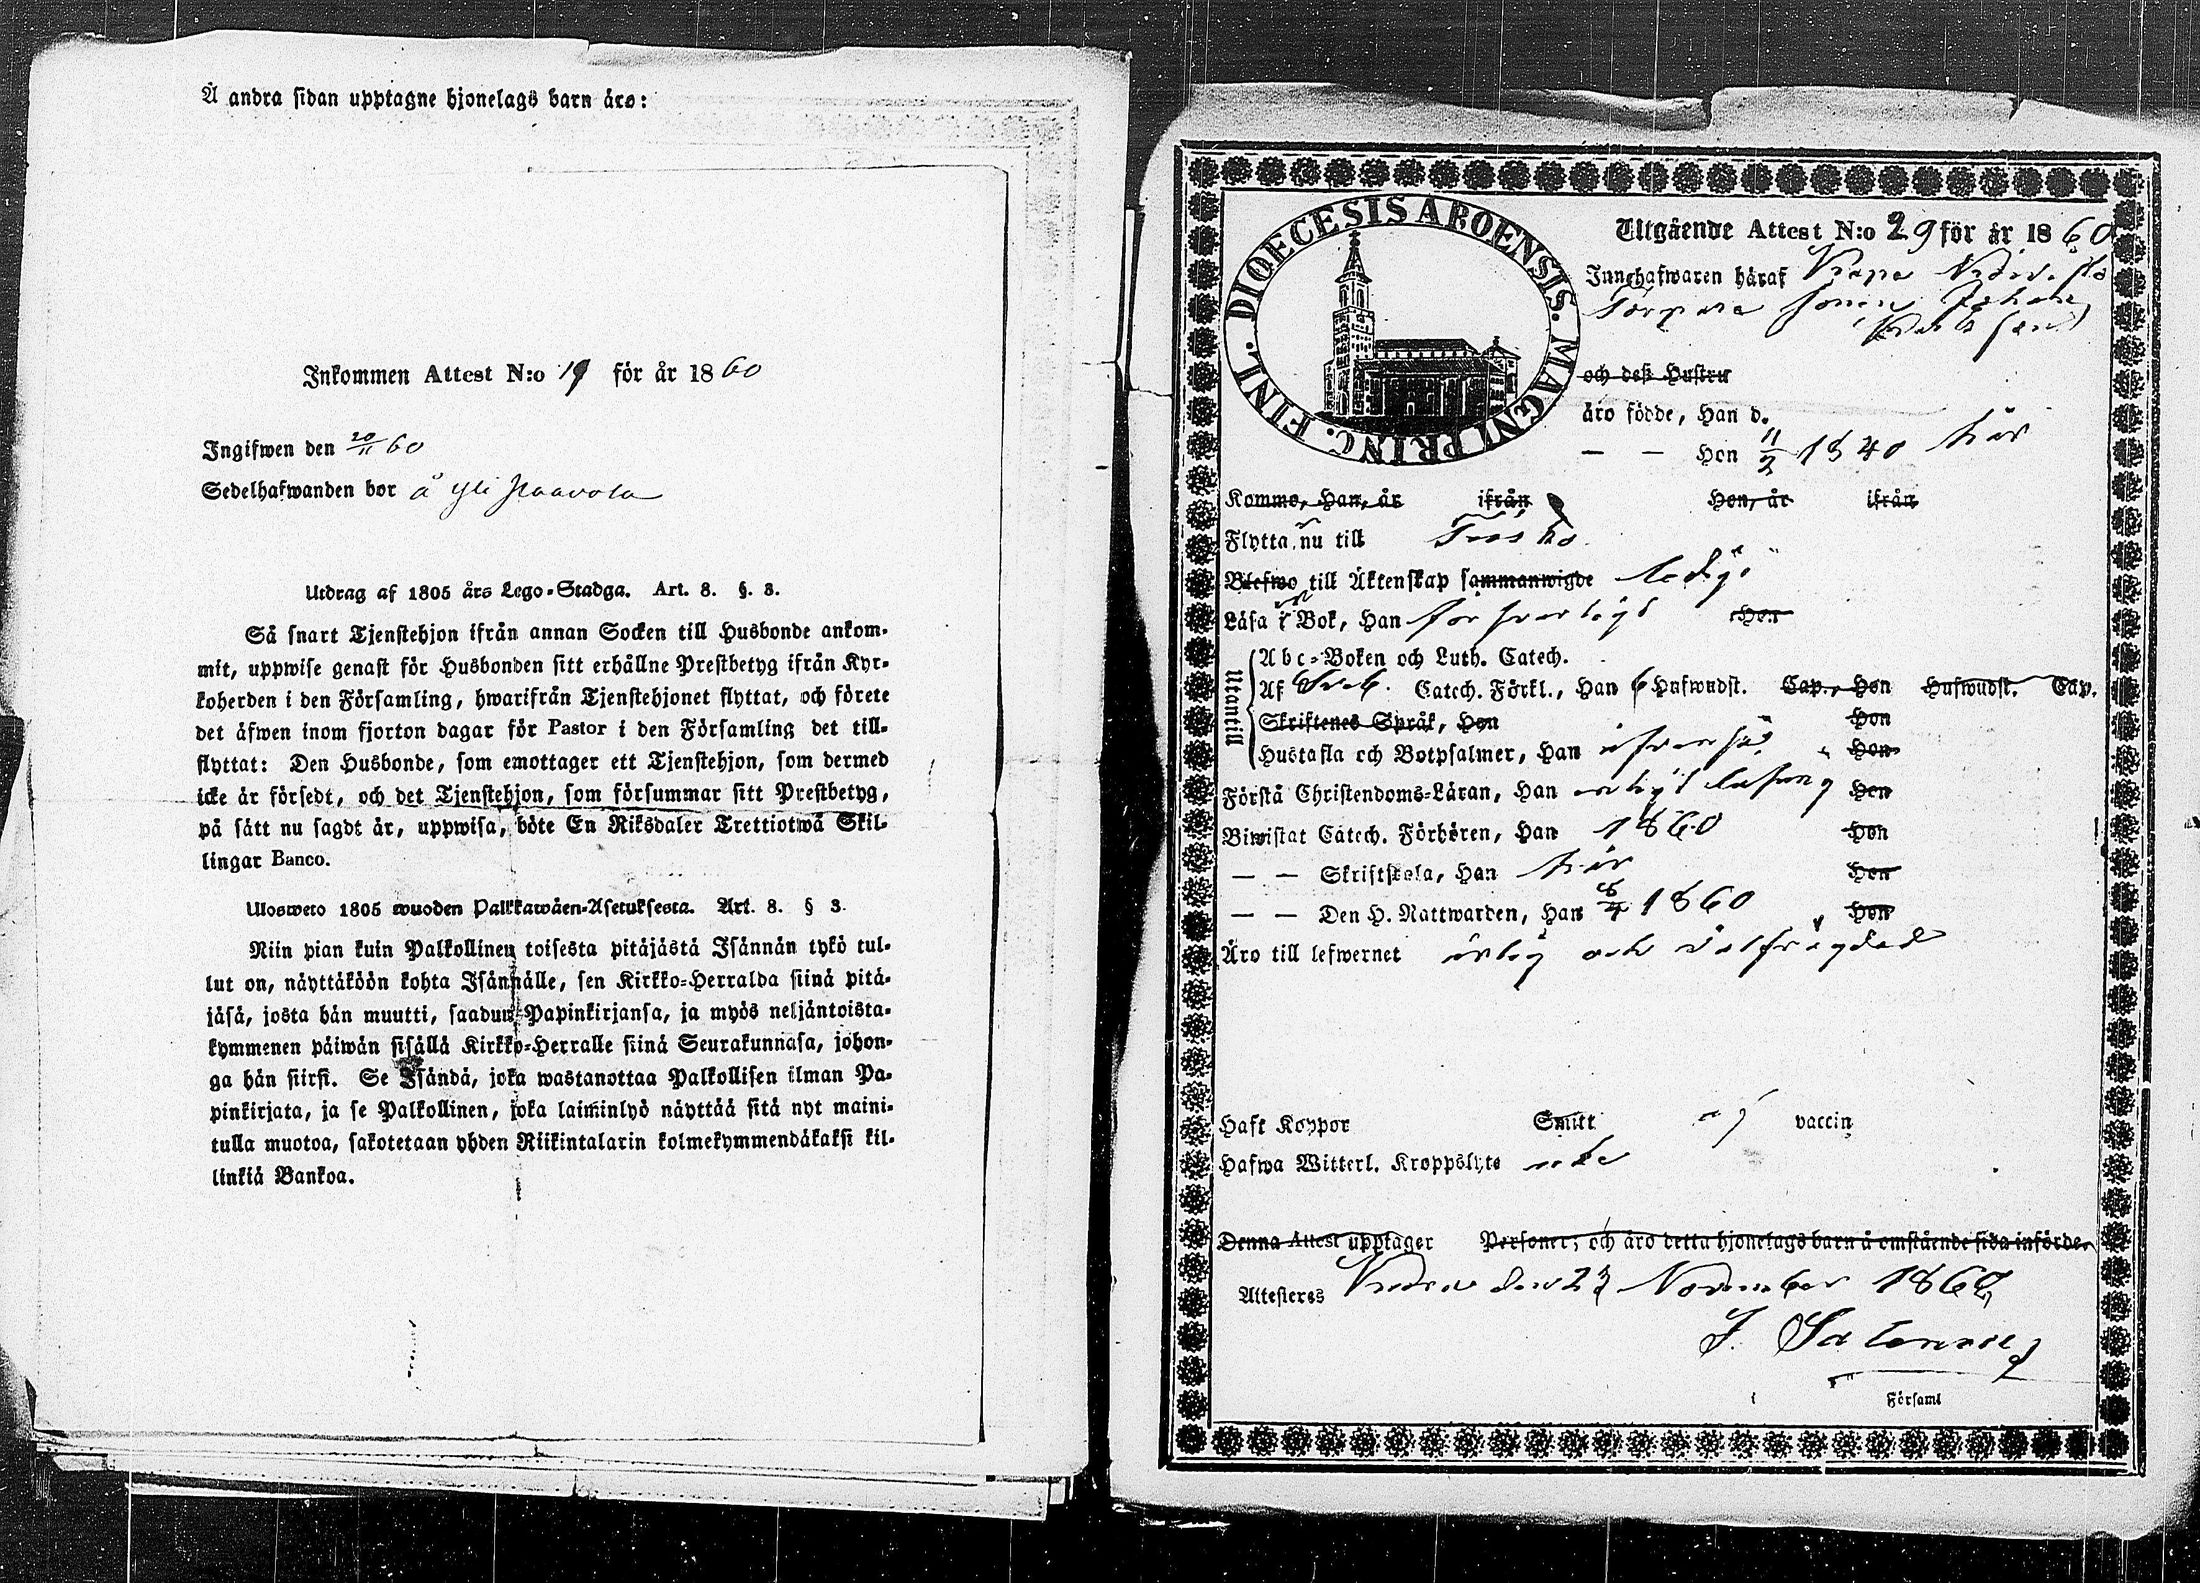 Å andra sidan upptagne hjonelags barn äro:
Inkommen Attest N:o 19 för år 1860
Ingifwen den 20/11 60
Sedelhafwanden bor å Yli
Utdrag af 1805 års Lego-Stadga. Art. 8. §. 3.
Så snart Tjenstehjon ifrån annan Socken till Husbonde ankom-
mit, uppwise genast för Husbonden sitt erhållne Prestbetyg ifrån Kyr-
koherden i den Församling, hwarifrån Tjenstehjonet flyttat, och förete
det äfwen inom fjorton dagar för Pastor i den Församling det till-
flyttat: Den Husbonde, som emottager ett Tjenstehjon, som dermed
icke är försedt, och det Tjenstehjon, som försummar sitt Prestbetyg,
på sätt nu sagdt är, uppwisa, böte En Riksdaler Trettiotwå Skil-
lingar Banco.
Ulosweto 1805 wuoden Palkkawäen-Asetuksesta. Art. 8. § 3.
Niin pian kuin Palkollinen toisesta pitäjästä Isännän tykö tul-
lut on, näyttäköön kohta Isännälle, sen Kirkko-Herralda siinä pitä-
jäsä, josta hän muutti, saadun Papinkirjansa, ja myös neljäntoista-
kymmenen päiwän sisällä Kirkko-Herralle siinä Seurakunnasa, johon-
ga hän siirsi. Se Isändä, joka wastanottaa Palkollisen ilman Pa-
pinkirjata, ja se Palkollinen, joka laiminlyö näyttää sitä nyt maini-
tulla muotoa, sakotetaan yhden Riikintalarin kolmekymmendäkaksi kil-
linkiä Bankoa.
DIOECESIS ABOENSIS. MAGNI PRINC. FINL.
Utgående Attest N:o 29 för år 1860
Innehafwaren häraf
Torpare sonen Johan
och dess Hustru
äro födde, Han d.
— — Hon 11/2 1840 här
Komne, Han, år ifrån Hon, år ifrån
Flytta nu till
Blefwo till Äktenskap sammanwigde ledig
Läsa i Bok, Han försvarligt Hon
Utantill
Abc-Boken och Luth. Catech.
Af Sveb. Catech. Förkl., Han 6 Hufwudst. Cap., Hon Hufwudst. Cap.
Skriftenes Språk, Han Hon
Hustafla och Botpsalmer, Han Hon
Förstå Christendoms-Läran, Han Hon
Biwistat Catech. Förhören, Han 1860 Hon
— — Skriftskola, Han här Hon
— — Den H. Nattwarden, Han 1860 Hon
Äro till lefwernet ärlig och välfrägdad
Haft Koppor Smitt ej vaccin
Hafwa Witterl. Kroppslyte icke
Denna Attest upptager Personer; och äro detta hjonelags barn å omstående sida införde.
Attesteras den 23 November 1860
J.
Församl